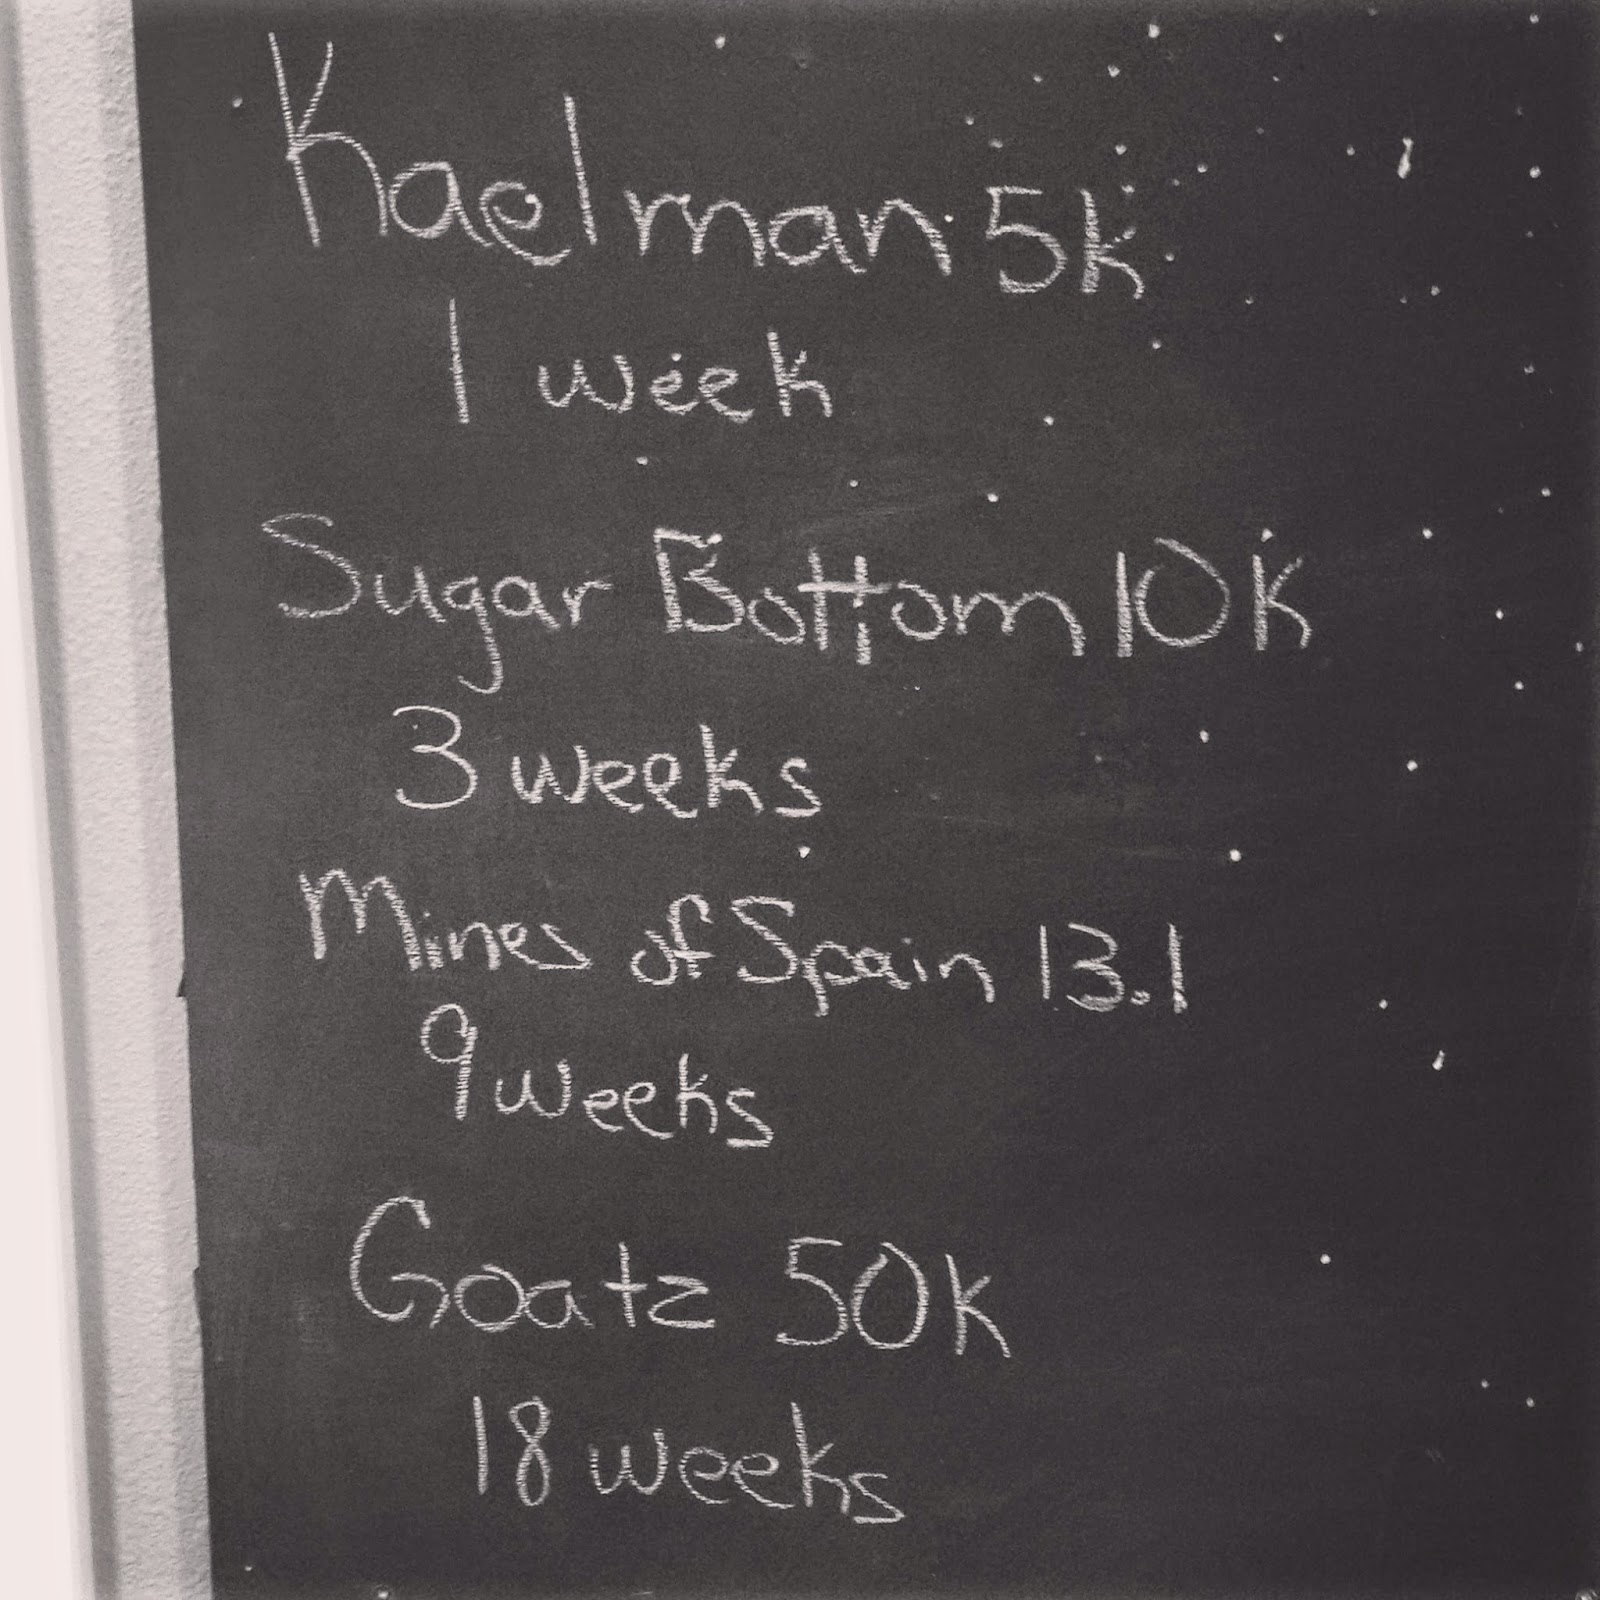 Kaelman 5k
1 week
Sugar Bottom 10k
3 weeks
Mines of Spain 13.1
9 weeks
Goatz 50k
18 weeks